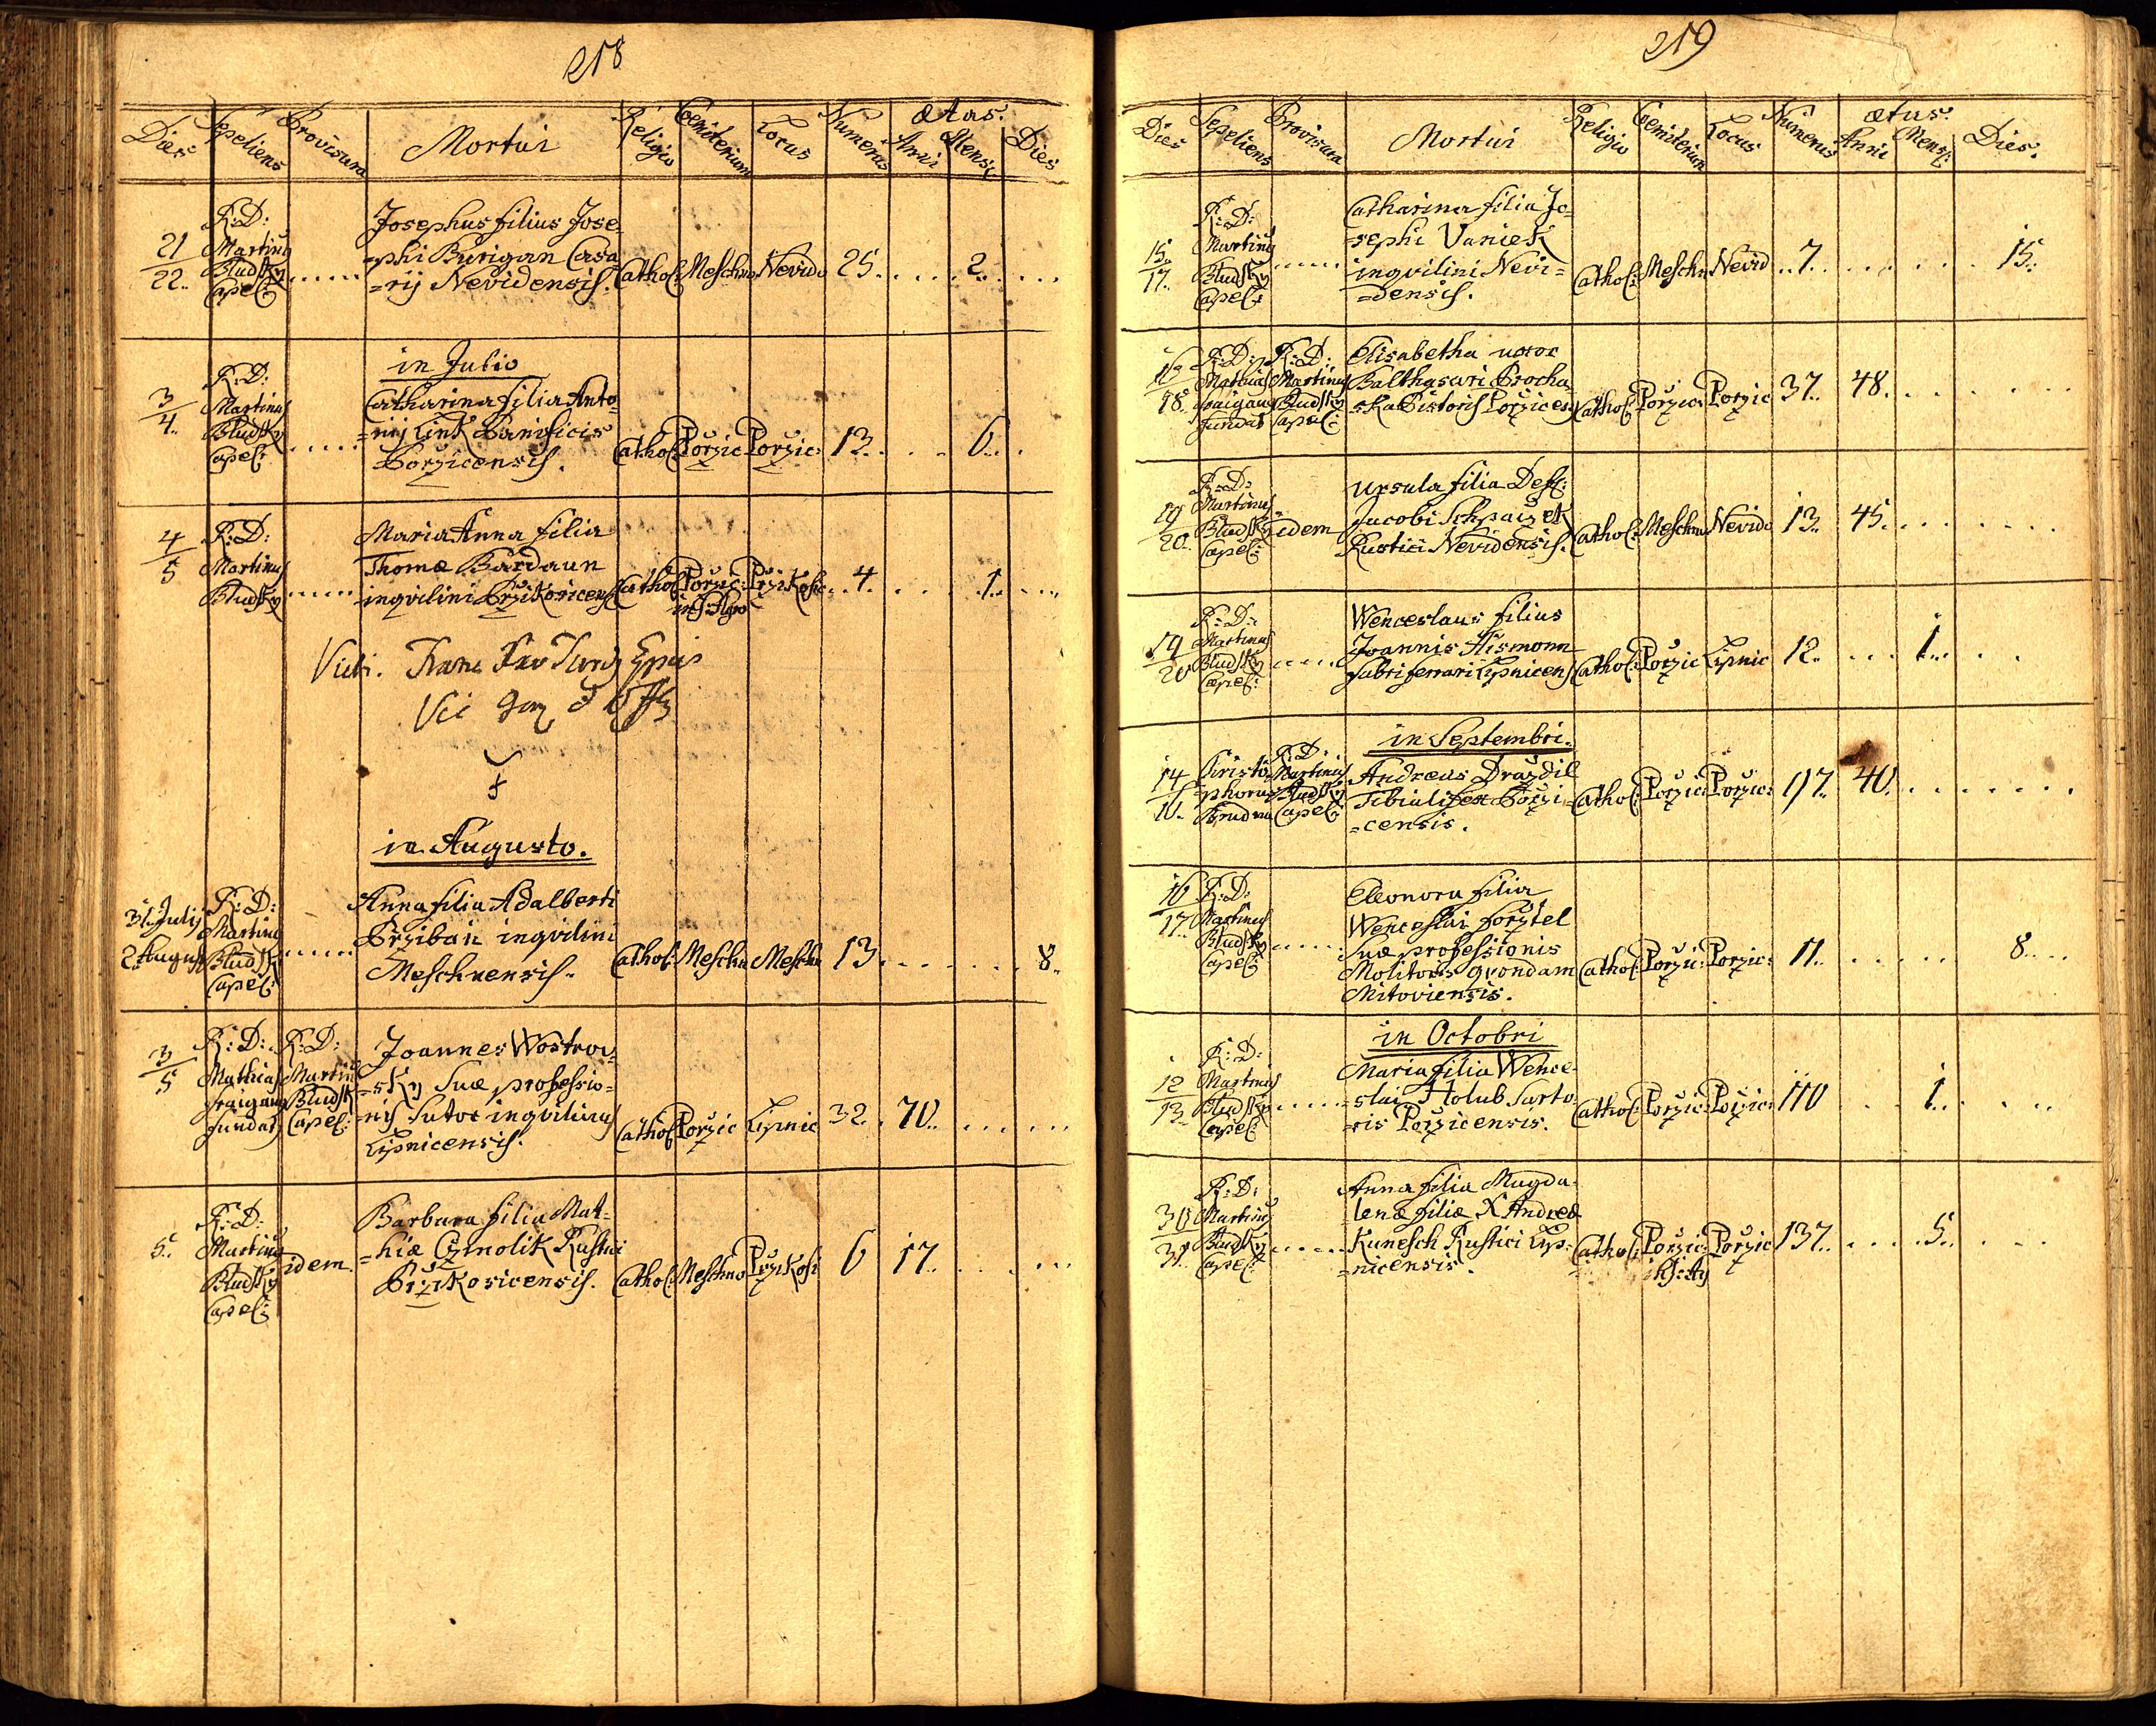 218
Dies Sepeliens Provisura Mortui Religio Cemiterium Locus Numerus ætas: Anni Mens: Dies
21/22.. R:D: Martinus Bludsky Capel: ..... Josephus filius Jose=
=phi Burigan Casa
=rij Nevidensis. Cathol: Meschno Nevido 25. . . . 2. . . .
in Julio
3/4.. R:D: Martinus Bludsky Capel: ..... Catharina filia Anto=
=nij Link Panificis
Porzicensis. Cathol: Porzic Porzic: 13. . . . 6. . .
4/5 R:D: Martinus Bludsky ..... Maria Anna filia
Thomæ Bardaun
inqvilini Przikosicens Cathol: Porzic: Przikosic. 4. . . . 1. . . .
Vidi.
in Augusto.
31. Julij
2. August R:D: Martinus Bludsky Capel: ..... Anna filia Adalberti
Przibaň inqvilini
Meschnensis. Cathol: Meschn Meschn 13. . . . . . 8..
3/5 R:D: Mathias Fundat: R:D: Martin Bludsk Capel: Joannes Wostrov=
=sky Suæ professio=
=nis Sutor inqvilinus
Lipnicensis. Cathol: Porzic Lipnic 32. . 70. . . . . .
5.. R:D: Martinus Bludsky Capel: idem. Barbara filia Mat=
=hiæ Czmolik Rustici
Przikosicensis. Cathol: Meschno Przikosi 6 17. . . . . .
219
Dies Sepeliens Provisura Mortui Religio Cemiterium Locus Numerus ætas: Anni Mens: Dies.
15./17.. R:D: Martinus Bludsky Capel: ..... Catharina filia Jo=
=sephi Vaniek
inqvilini Nevi=
=densis. Cathol: Meschn Nevid ..7. . . . . . . 15.
16/18.. R:D: Mathias Fundat R:D: Martinus Bludsky Capel: Elisabetha uxor
Balthasari Procha
ska Pistoris Porzicens Cathol: Porzic: Porzic 37. 48. . . . . . .
19/20. R:D: Martinus Bludsky Capel: idem Ursula filia Def:
Jacobi Schpaizek
Rustici Nevidensis. Cathol: Meschno Nevido 13. 45. . . . . . .
19/20 R:D: Martinus Bludsky Capel: ..... Wenceslaus filius
Joannis Hismann
fabri ferrari Lipnicens Cathol: Porzic Lipnic 12. . . . 1. . . .
in Septembri.
14/16.. Cristo=
=phorus R:D: Martinus Bludsky Capel: Andreas Drazdil
Tibialifex Porzi=
=censis. Cathol: Porzic: Porzic: 117. 40. . . . . . .
16/17.. R:D: Martinus Bludsky Capel: ..... Eleonora filia
Wenceslai Forztel
Suæ professionis
Molitoris qvondam
Mitoviensis. Cathol: Porzic: Porzic: 11. . . . . . 8. . .
in Octobri
12/13.. R:D: Martinus Bludsky Capel: ..... Maria filia Wence=
=slai Holub Sarto=
=ris Porzicensis. Cathol: Porzic: Porzic: 110 . . 1. . . .
30/31.. R:D: Martinus Bludsky Capel: ..... Anna filia Magda=
lenæ filiæ X Andreæ
Kunesch Rustici Lip=
=nicensis. Cathol: Porzic: Porzic 137. . . . 5. . . .